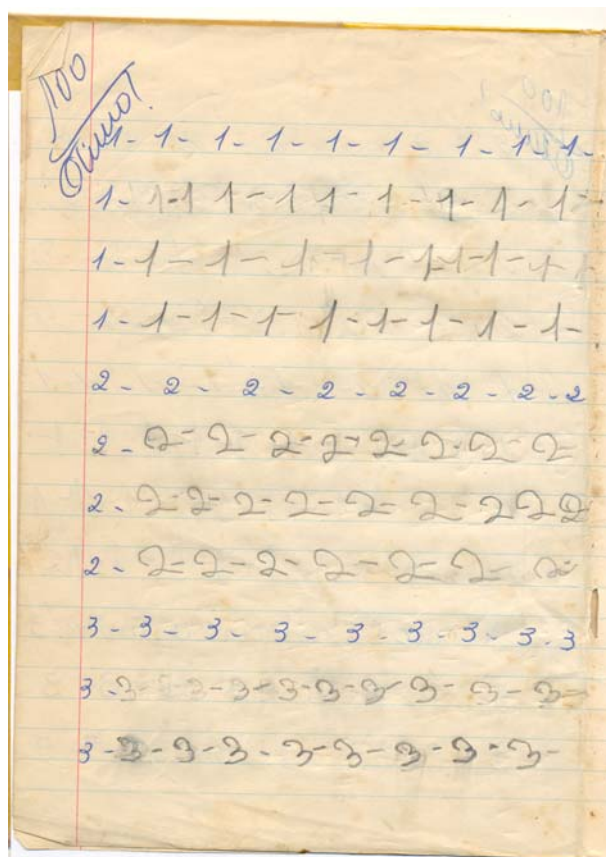 100
Ótimo!
1- 1- 1- 1- 1- 1- 1- 1- 1-
1- 1-1 1- 1 1- 1- 1- 1- 1-
1- 1- 1- 1- 1- 1-1-1-1-1
1- 1-1-1- 1-1-1-1-1-
2- 2- 2- 2- 2- 2- 2-2
2- 2- 2- 2-2-2-2-2-2
2- 2-2-2-2-2-2-2 2 2
2- 2-2-2-2-2-2- 2
3-3-3-3-3-3-3-3-3
3-3-3-3-3-3-3-3-3-3-3-
3-3-3-3-3-3-3-3-3-